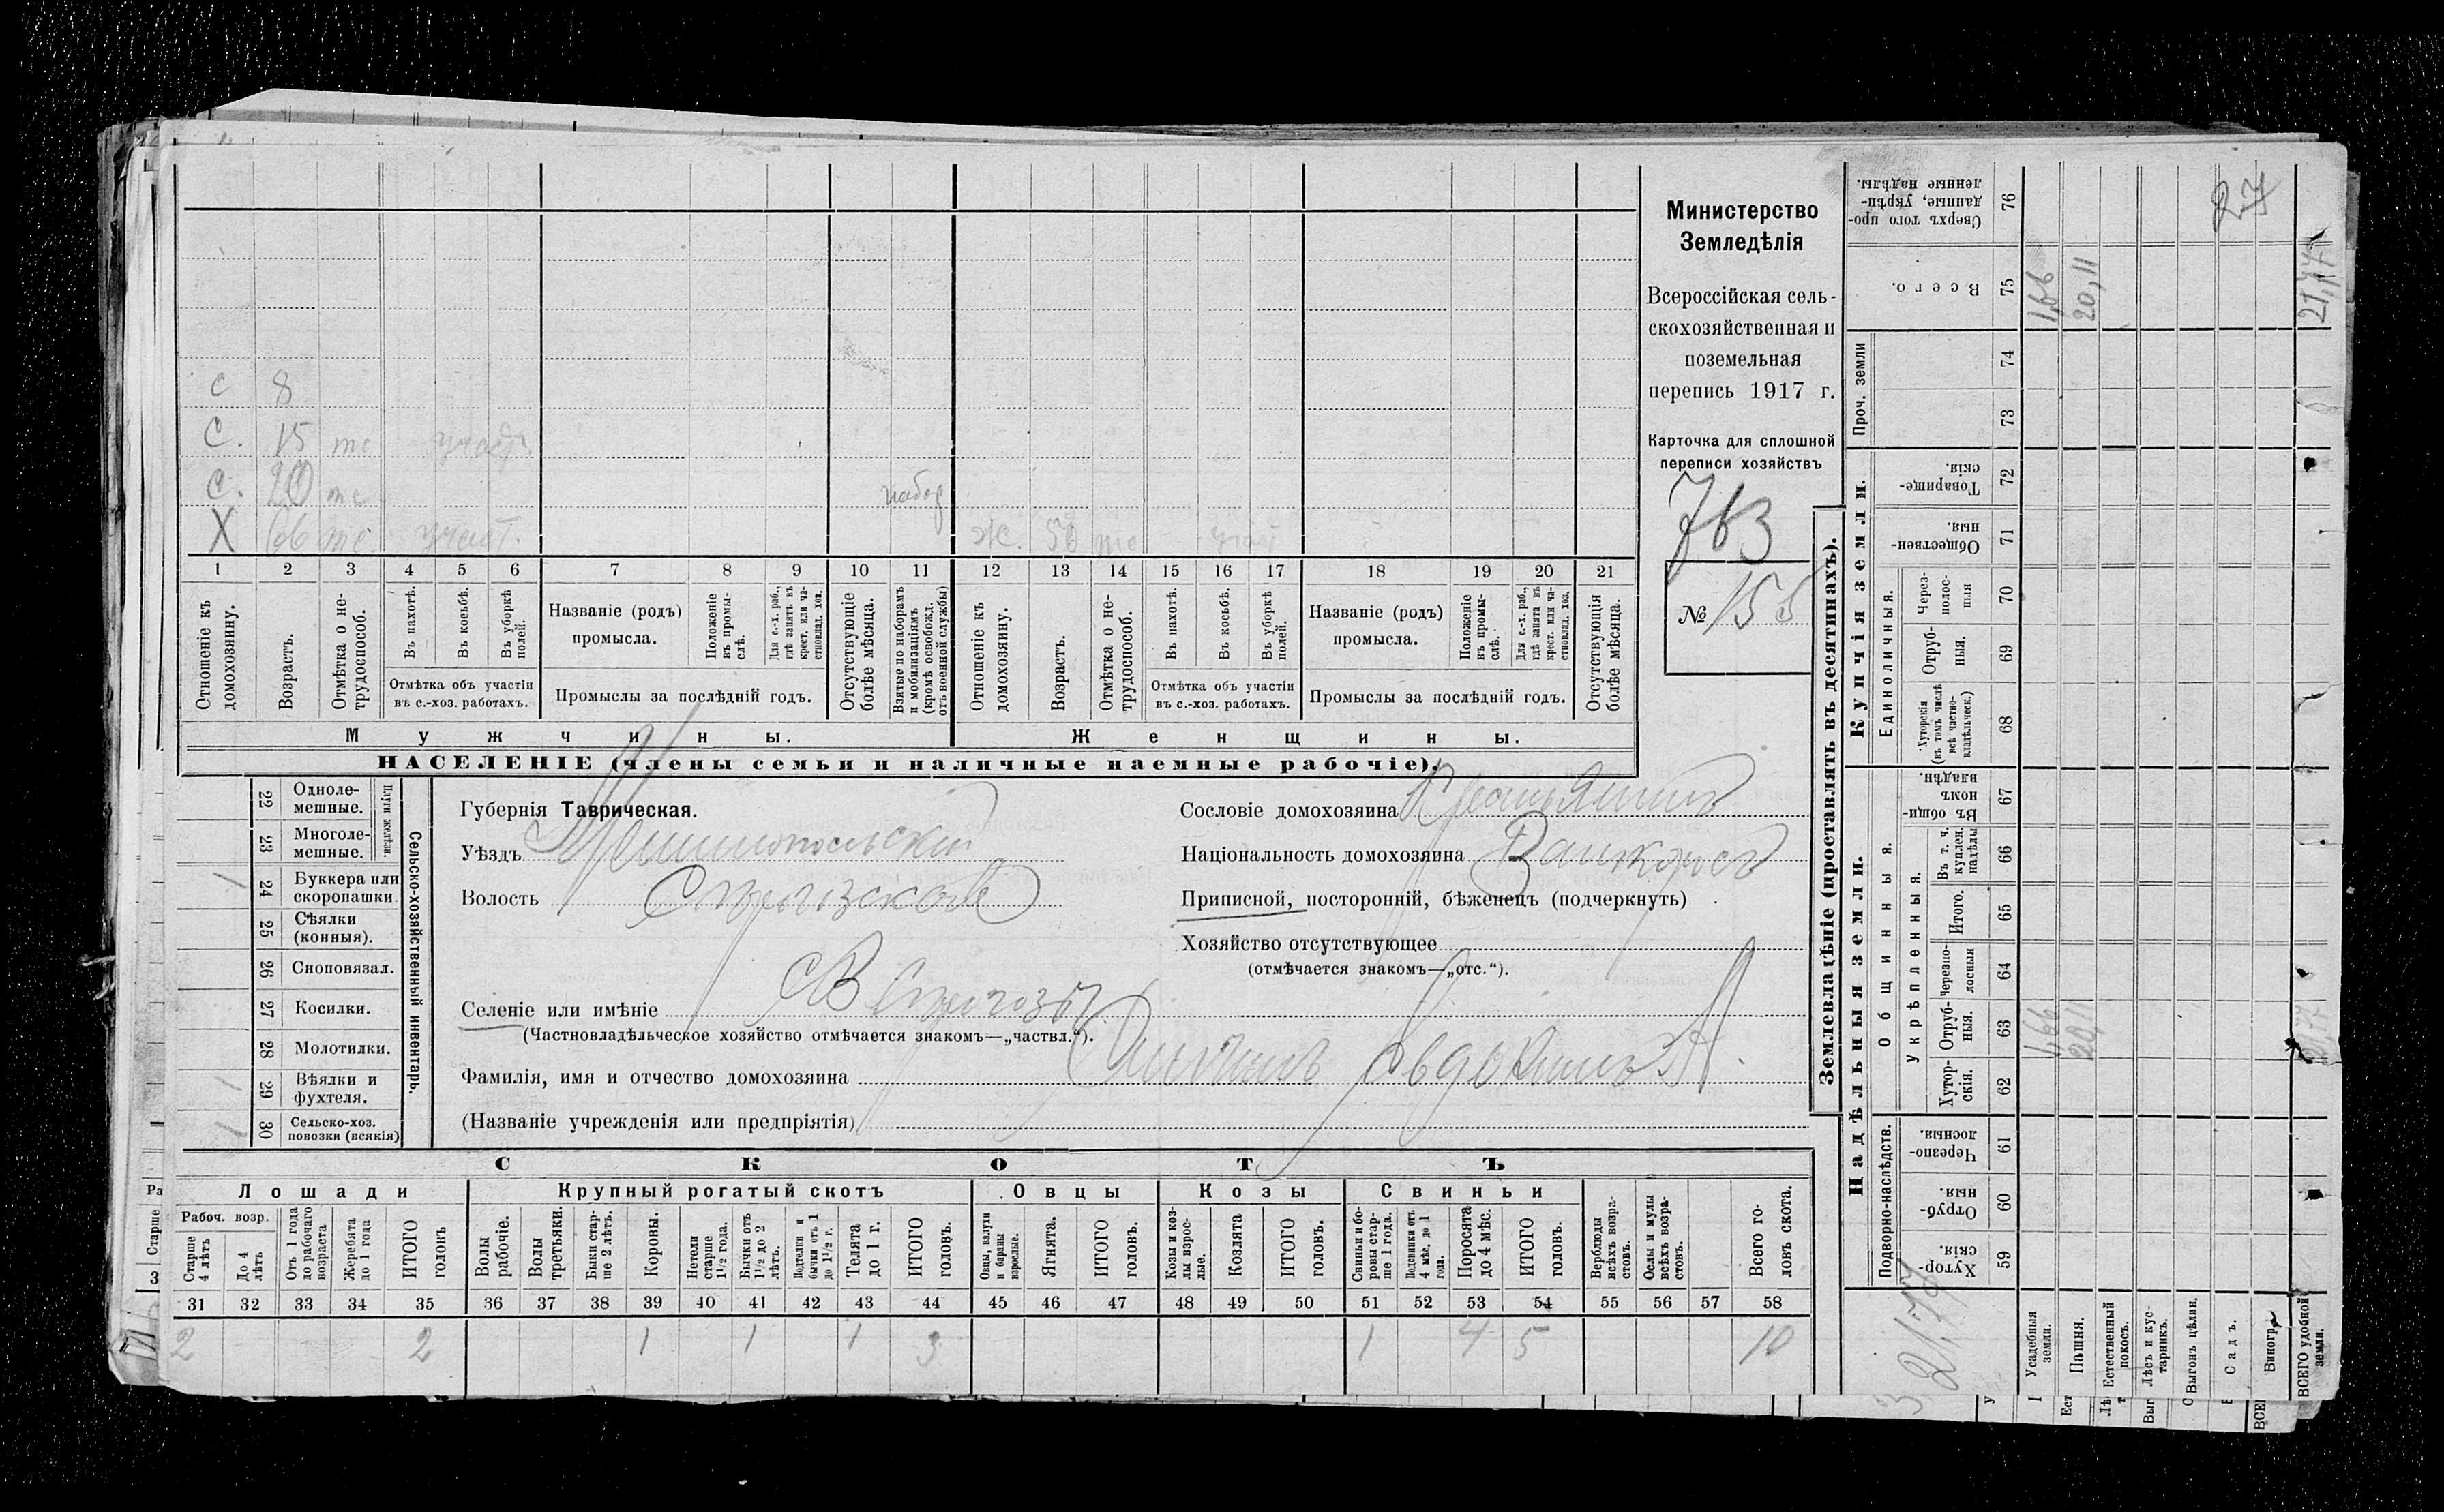 с 8
с. 15 тс участ.
с. 20 тс набор
Х 66 тс участ. Ж. 50 тс участ
1 2 3 4 5 6 7 8 9 10 11 12 13 14 15 16 17 18 19 20 21
Отношеніе къ домохозяину.
Возрастъ.
Отмѣтка о не-трудоспособ.
Въ пахотѣ.
Въ косьбѣ.
Въ уборкѣ полей.
Отмѣтка объ участіи
въ с.-хоз. работахъ.
Названіе (родъ)
промысла.
Положеніе въ промы-слѣ.
Для с.-х. раб., гдѣ занятъ въ крест. или ча-стновлад. хоз.
Промыслы за послѣдній годъ.
Отсутствующіе болѣе мѣсяца.
Взятые по наборамъ и мобилизаціямъ (кромѣ освобожд. отъ военной службы)
Отношеніе къ домохозяину.
Возрастъ.
Отмѣтка о не-трудоспособ.
Въ пахотѣ.
Въ косьбѣ.
Въ уборкѣ полей.
Отмѣтка объ участіи
въ с.-хоз. работахъ.
Названіе (родъ)
промысла.
Положеніе въ промы-слѣ.
Для с.-х. раб., гдѣ занята въ крест. или ча-стновлад. хоз.
Промыслы за послѣдній годъ.
Отсутствующія болѣе мѣсяца.
Мужчины. Женщины.
НАСЕЛЕНІЕ (члены семьи и наличные наемные рабочіе).
Министерство
Земледѣлія
Всероссійская сель-
скохозяйственная и
поземельная
перепись 1917 г.
Карточка для сплошной
переписи хозяйствъ
763
№ 155
22 Однолемешные.
23 Многолемешные.
Плуги желѣзн.
1 24 Буккера или скоропашки.
25 Сѣялки (конныя).
26 Сноповязал.
27 Косилки.
28 Молотилки.
1 29 Вѣялки и фухтеля.
1 30 Сельско-хоз. повозки (всякія)
Сельско-хозяйственный инвентарь.
Губернія Таврическая.
Уѣздъ Мелитопольскій
Волость
Селеніе или имѣніе
(Частновладѣльческое хозяйство отмѣчается знакомъ—„частвл.“).
Фамилія, имя и отчество домохозяина
(Названіе учрежденія или предпріятія)
Сословіе домохозяина Крестьянинъ
Національность домохозяина
Приписной, посторонній, бѣженецъ (подчеркнуть)
Хозяйство отсутствующее
(отмѣчается знакомъ—„отс.“).
СКОТЪ
Лошади Крупный рогатый скотъ Овцы Козы Свиньи
Рабоч. возр.
Старше 4 лѣтъ
До 4 лѣтъ
Отъ 1 года до рабочаго возраста
Жеребята до 1 года
ИТОГО головъ
Волы рабочіе.
Волы третьяки.
Быки стар-ше 2 лѣтъ.
Коровы.
Нетели старше 1½ года.
Бычки отъ 1½ до 2 лѣтъ.
Подтелки и бычки отъ 1 до 1½ г.
Телята до 1 г.
ИТОГО головъ.
Овцы, валухи и бараны взрослые.
Ягнята.
ИТОГО головъ.
Козы и коз-лы взрос-лые.
Козлята
ИТОГО головъ.
Свиньи и бо-ровы стар-ше 1 года.
Подсвинки отъ 4 мѣс. до 1 года.
Поросята до 4 мѣс.
ИТОГО головъ.
Верблюды всѣхъ возра-стовъ.
Ослы и мулы всѣхъ возра-стовъ.
Всего го-ловъ скота.
31 32 33 34 35 36 37 38 39 40 41 42 43 44 45 46 47 48 49 50 51 52 53 54 55 56 57 58
2 2 1 1 1 3 1 4 5 10
Землевладѣніе (проставлять въ десятинахъ).
Надѣльныя земли.
Купчія земли.
Проч. земли
Подворно-наслѣдств.
Общинныя.
Укрѣпленныя.
Единоличныя.
59 Хутор-скія.
60 Отруб-ныя.
61 Черезпо-лосныя.
62 Хутор-скія.
63 Отруб-ныя.
64 Черезпо-лосныя
65 Итого.
66 Въ т. ч. куплен. надѣлы
67 Въ общи-номъ владѣн.
68 Хуторскія (въ томъ числѣ всѣ частно-владѣльческ.)
69 Отруб-ныя.
70 Через-полос-ныя
71 Обществен-ныя.
72 Товарище-скія.
73
74
75 Всего.
76 Сверхъ того про-данные, укрѣп-ленные надѣлы.
Усадебныя земли. 1,66 1,66
Пашня. 20,11 20,11
Естественный покосъ.
Лѣсъ и кус-тарникъ.
Выгонъ цѣлин.
Садъ.
Виногр.
ВСЕГО удобной земли. 21,77 21,77
27
21,77